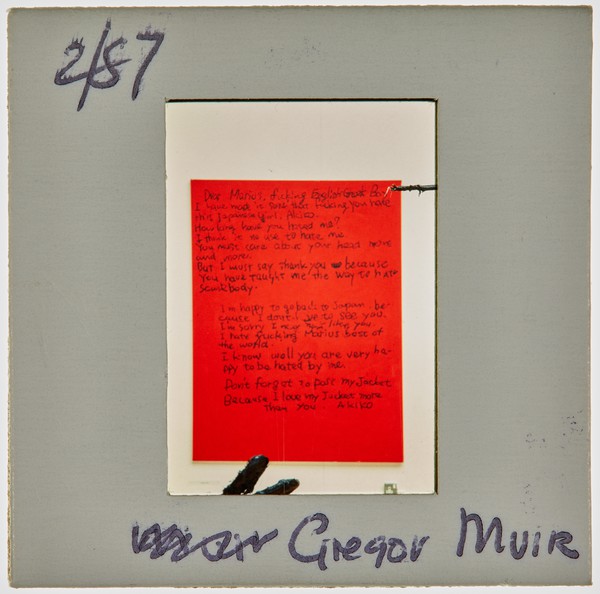 2/87
Dear Marius, fucking English Great Boy
I have made it sure that fucking you hate
this Japanese girl, Akiko.
How long have you hated me?
I think it no use to hate me
You must care about your head more
and more.
But I must say thank you because
You have taught me the way to hate
somebody.
I'm happy to go back to Japan. be-
cause I don't to see you.
I'm sorry I never like you.
I hate fucking Marius most of
the world.
I know well you are very ha-
ppy to be hated by me.
Don't forget to post my Jacket
Because I love my Jacket more
Than You. Akiko
Gregor Muir